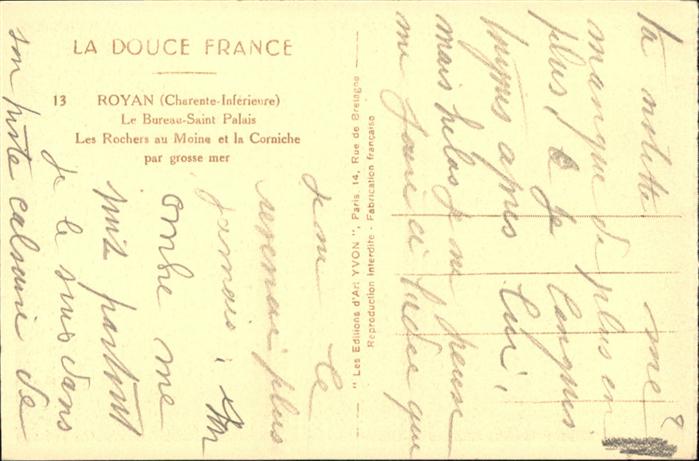 LA DOUCE FRANCE
13 ROYAN (Charente-Inférieure)
Le Bureau-Saint Palais
Les Rochers au Moine et la Corniche
par grosse mer
" Les Editions d'Art YVON ", Paris, 14, Rue de Bretagne
Reproduction Interdite - Fabrication française
ta me
manque de plus en
plus! je languis
après lui,
mais hélas je ne peux
me faire à l'idée que
je ne le
reverrai plus
jamais,
ombre me
suit partout
je le suis dans
son triste calvaire de